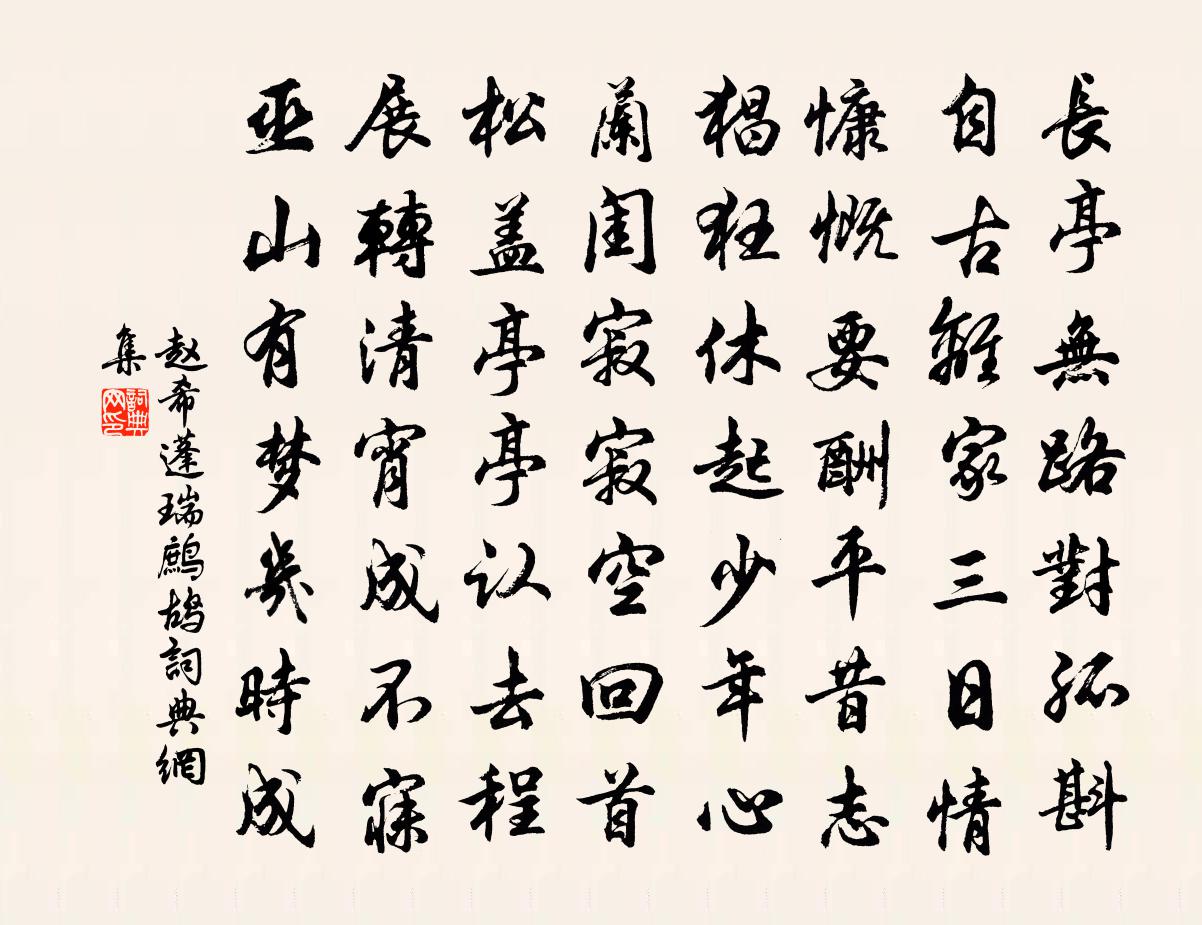 長亭無路對孤斟
自古難家三日情
慷慨要酬平昔志
猖狂休起少年心
蘭閨寂寂空回首
松盖亭亭认去程
展轉清宵成不寐
巫山有梦幾時成
赵希蓬瑞鷓鴣詞典網
集
詞典
网印